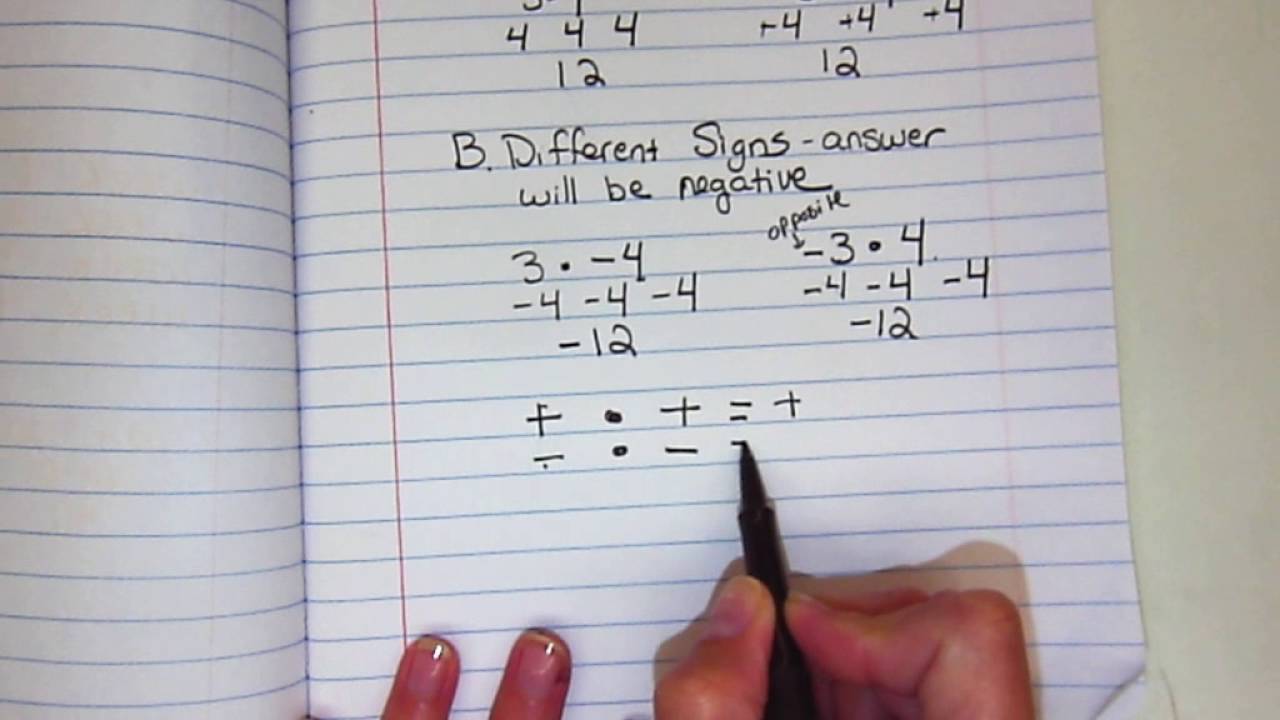 4 4 4 +4 +4 +4
12 12
B. Different Signs - answer
will be negative
opposite
3 · -4 -3 · 4
-4 -4 -4 -4 -4 -4
-12 -12
+ · + = +
- · -